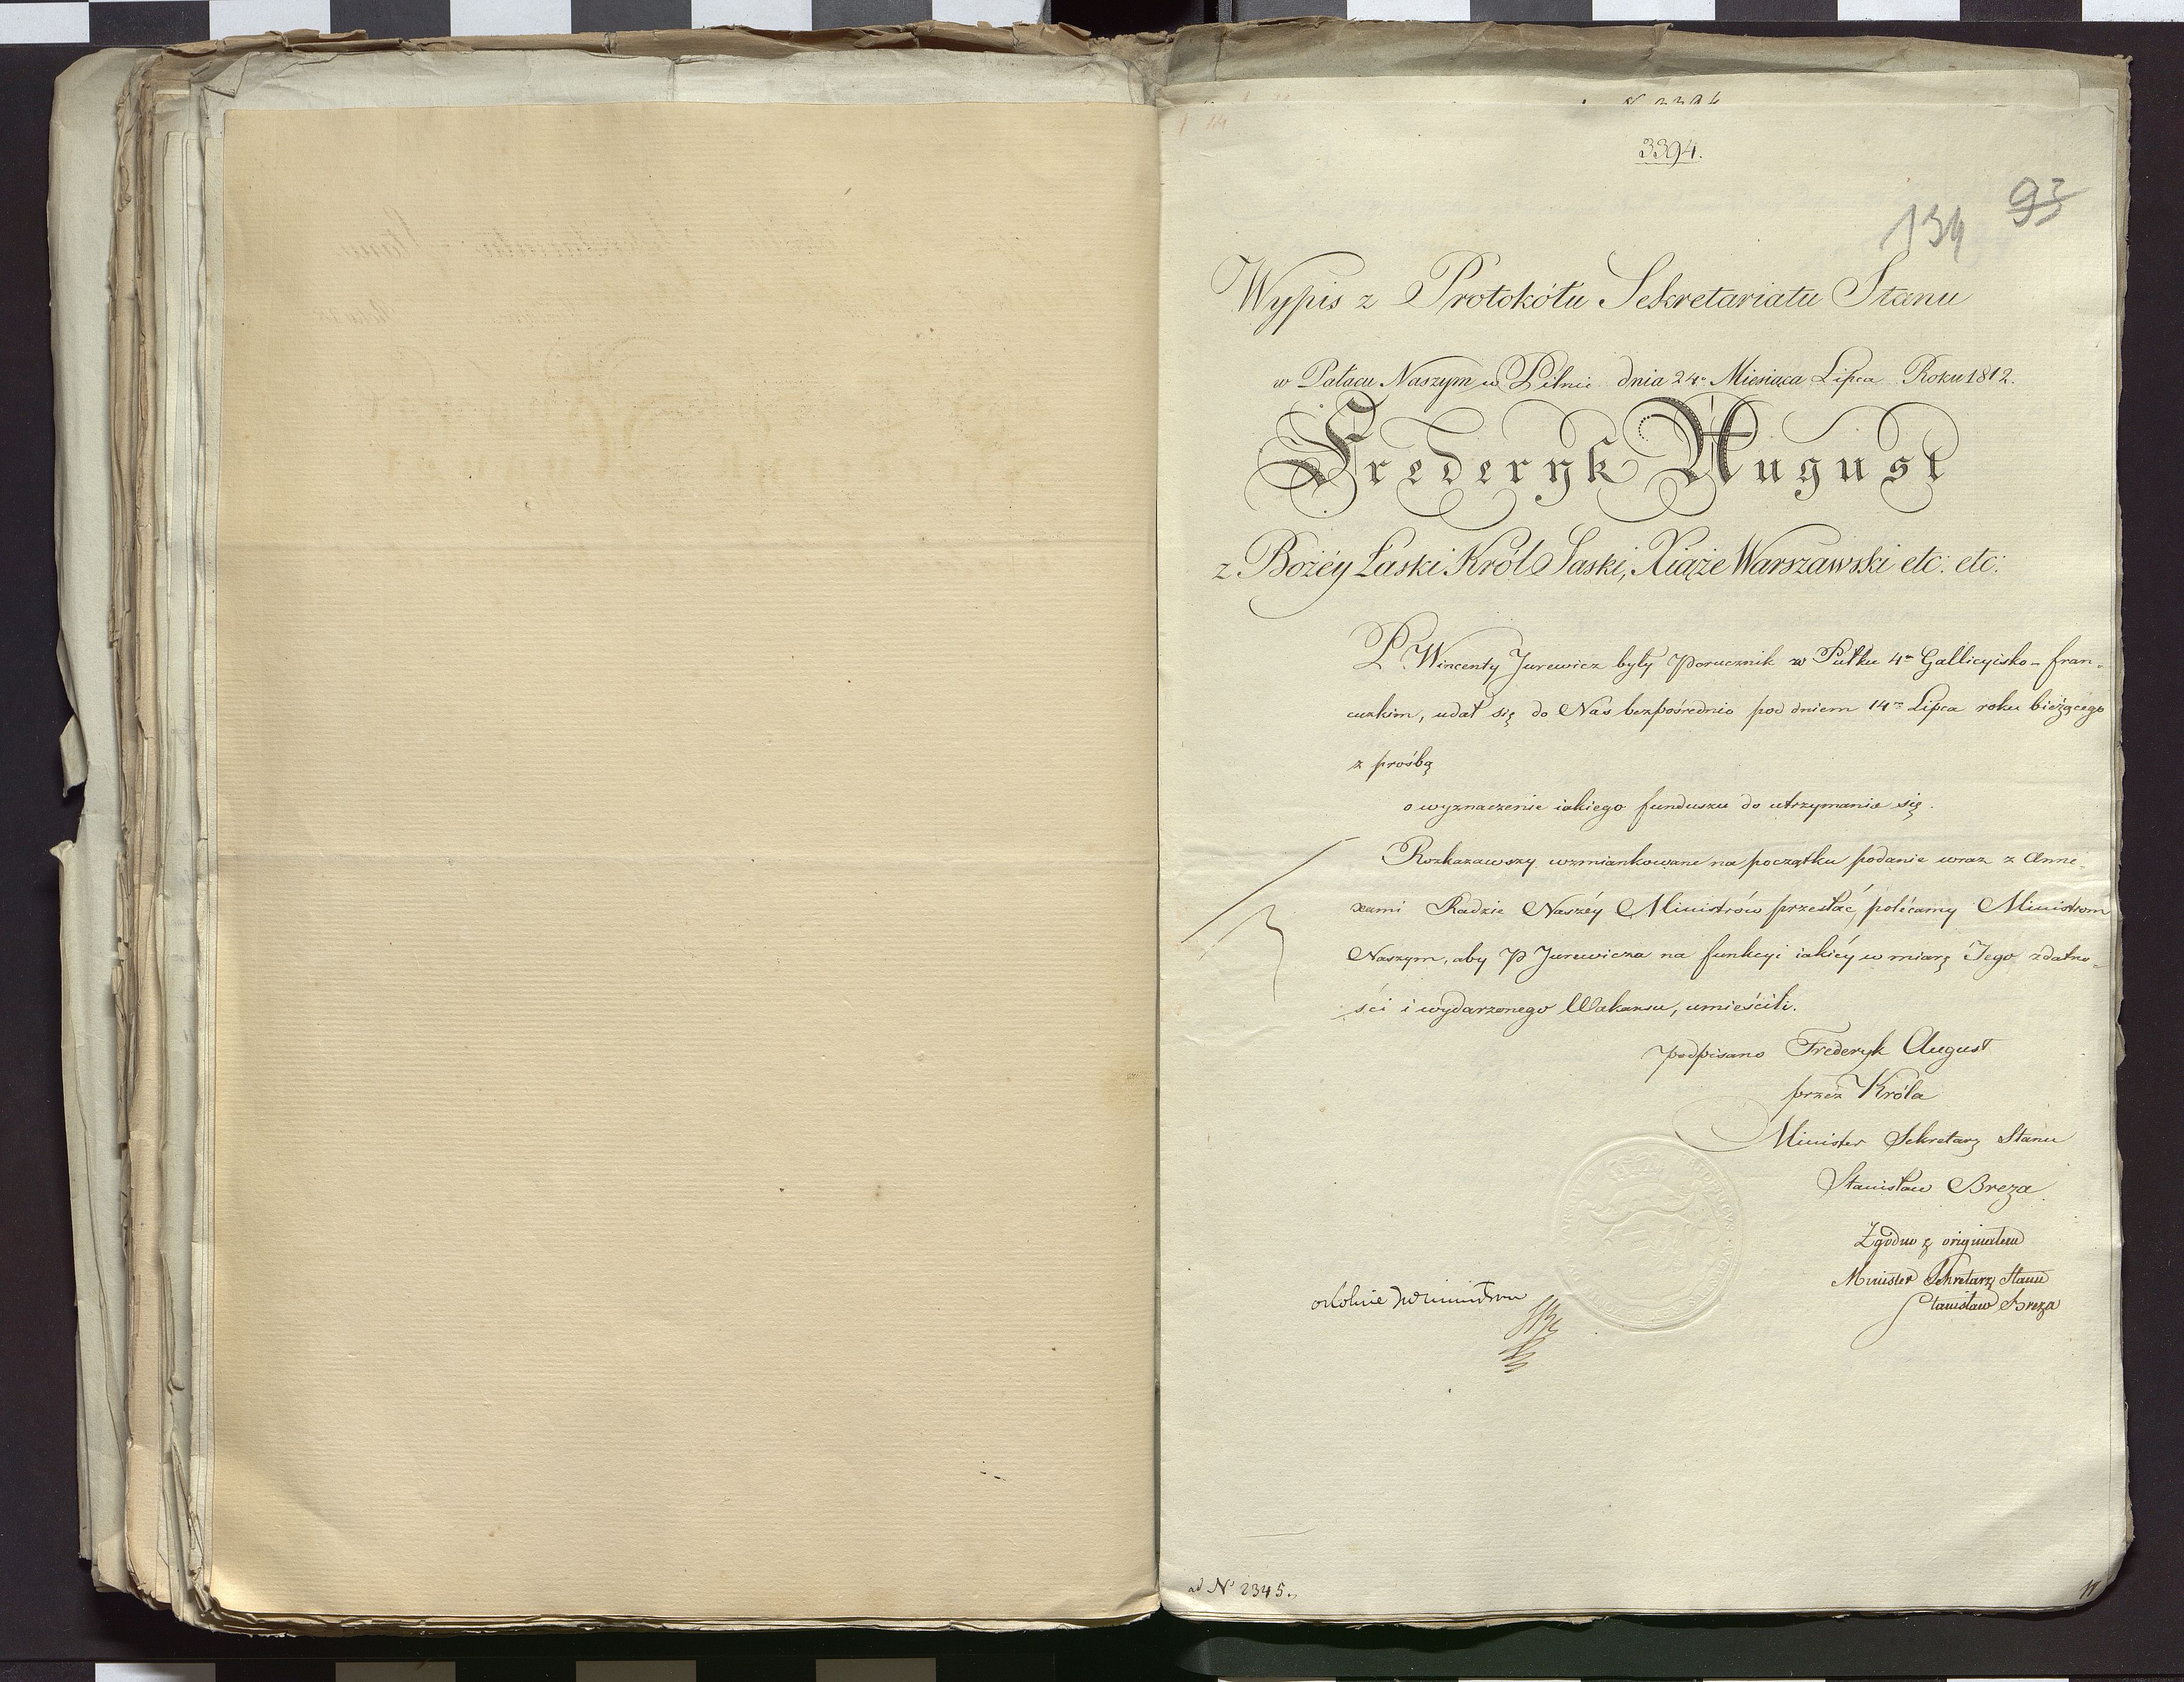 3394.
93
134
Wypis z Protokółu Sekretariatu Stanu
w Pałacu Naszym w Pilnic dnia 24º Miesiąca Lipca Roku 1812.
Frederyk August
z Bożéy Łaski Król Saski, Xiąże Warszawski etc: etc:
P. Wincenty Jurewicz były Porucznik w Pułku 4m Gallicyisko-fran-
cuzkim, udał się do Nas bezpośrednio pod dniem 14m Lipca roku bieżącego
z prośbą
o wyznaczenie iakiego funduszu do utrzymania się.
Rozkazawszy wzmiankowane na początku podanie wraz z Anne-
xami Radzie Naszéy Ministrów przesłać, polécamy Ministrom
Naszym, aby P Jurewicza na funkcyi iakiéy w miarę Jego zdatno-
ści i wydarzonego Wakansu, umieścili.
podpisano Frederyk August
przez Króla
Minister Sekretarz Stanu
Stanisław Breza.
Zgodno z originałem
Minister Sekretarz Stanu
Stanisław Breza
ad Nº 2345.
11